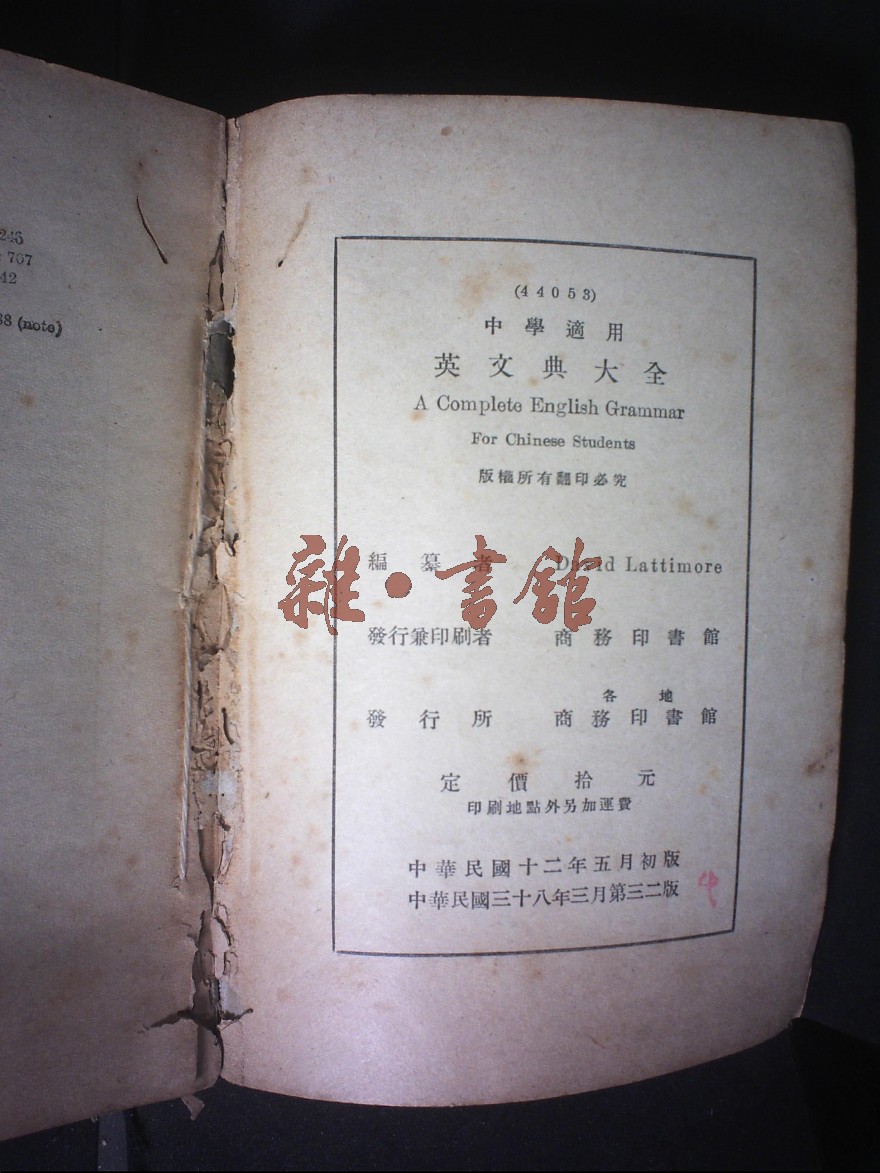 246
707
42
38 (note)
(44053)
中學適用
英文典大全
A Complete English Grammar
For Chinese Students
版權所有翻印必究
編纂者 David Lattimore
雜·書館
發行兼印刷者 商務印書館
各地
發行所 商務印書館
定價拾元
印刷地點外另加運費
中華民國十二年五月初版
中華民國三十八年三月第三二版
中